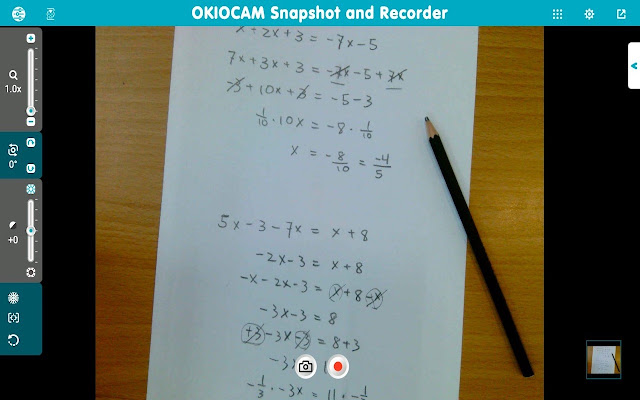 OKIOCAM Snapshot and Recorder
x + 2x + 3 = -7x - 5
1.0x
7x + 3x + 3 = -7x - 5 + 7x
-3 + 10x + 3 = -5 - 3
1/10 · 10x = -8 · 1/10
0°
x = -8/10 = -4/5
+0
5x - 3 - 7x = x + 8
-2x - 3 = x + 8
-x - 2x - 3 = x + 8 - x
-3x - 3 = 8
+3 - 3x - 3 = 8 + 3
-3x
-1/3 · -3x = 11 · -1/3